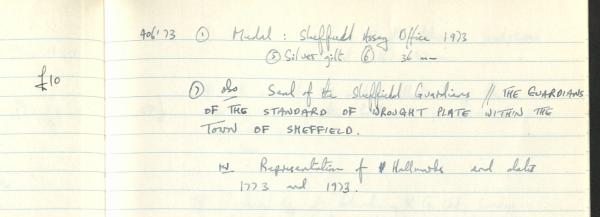 406'73 ① Medal : Sheffield Assay Office 1973
⑤ Silver gilt ⑥ 36 mm
£10
⑦ obv Seal of the Sheffield Guardians // THE GUARDIANS
OF THE STANDARD OF WROUGHT PLATE WITHIN THE
TOWN OF SHEFFIELD.
Representation of Hallmarks and dates
1773 and 1973.